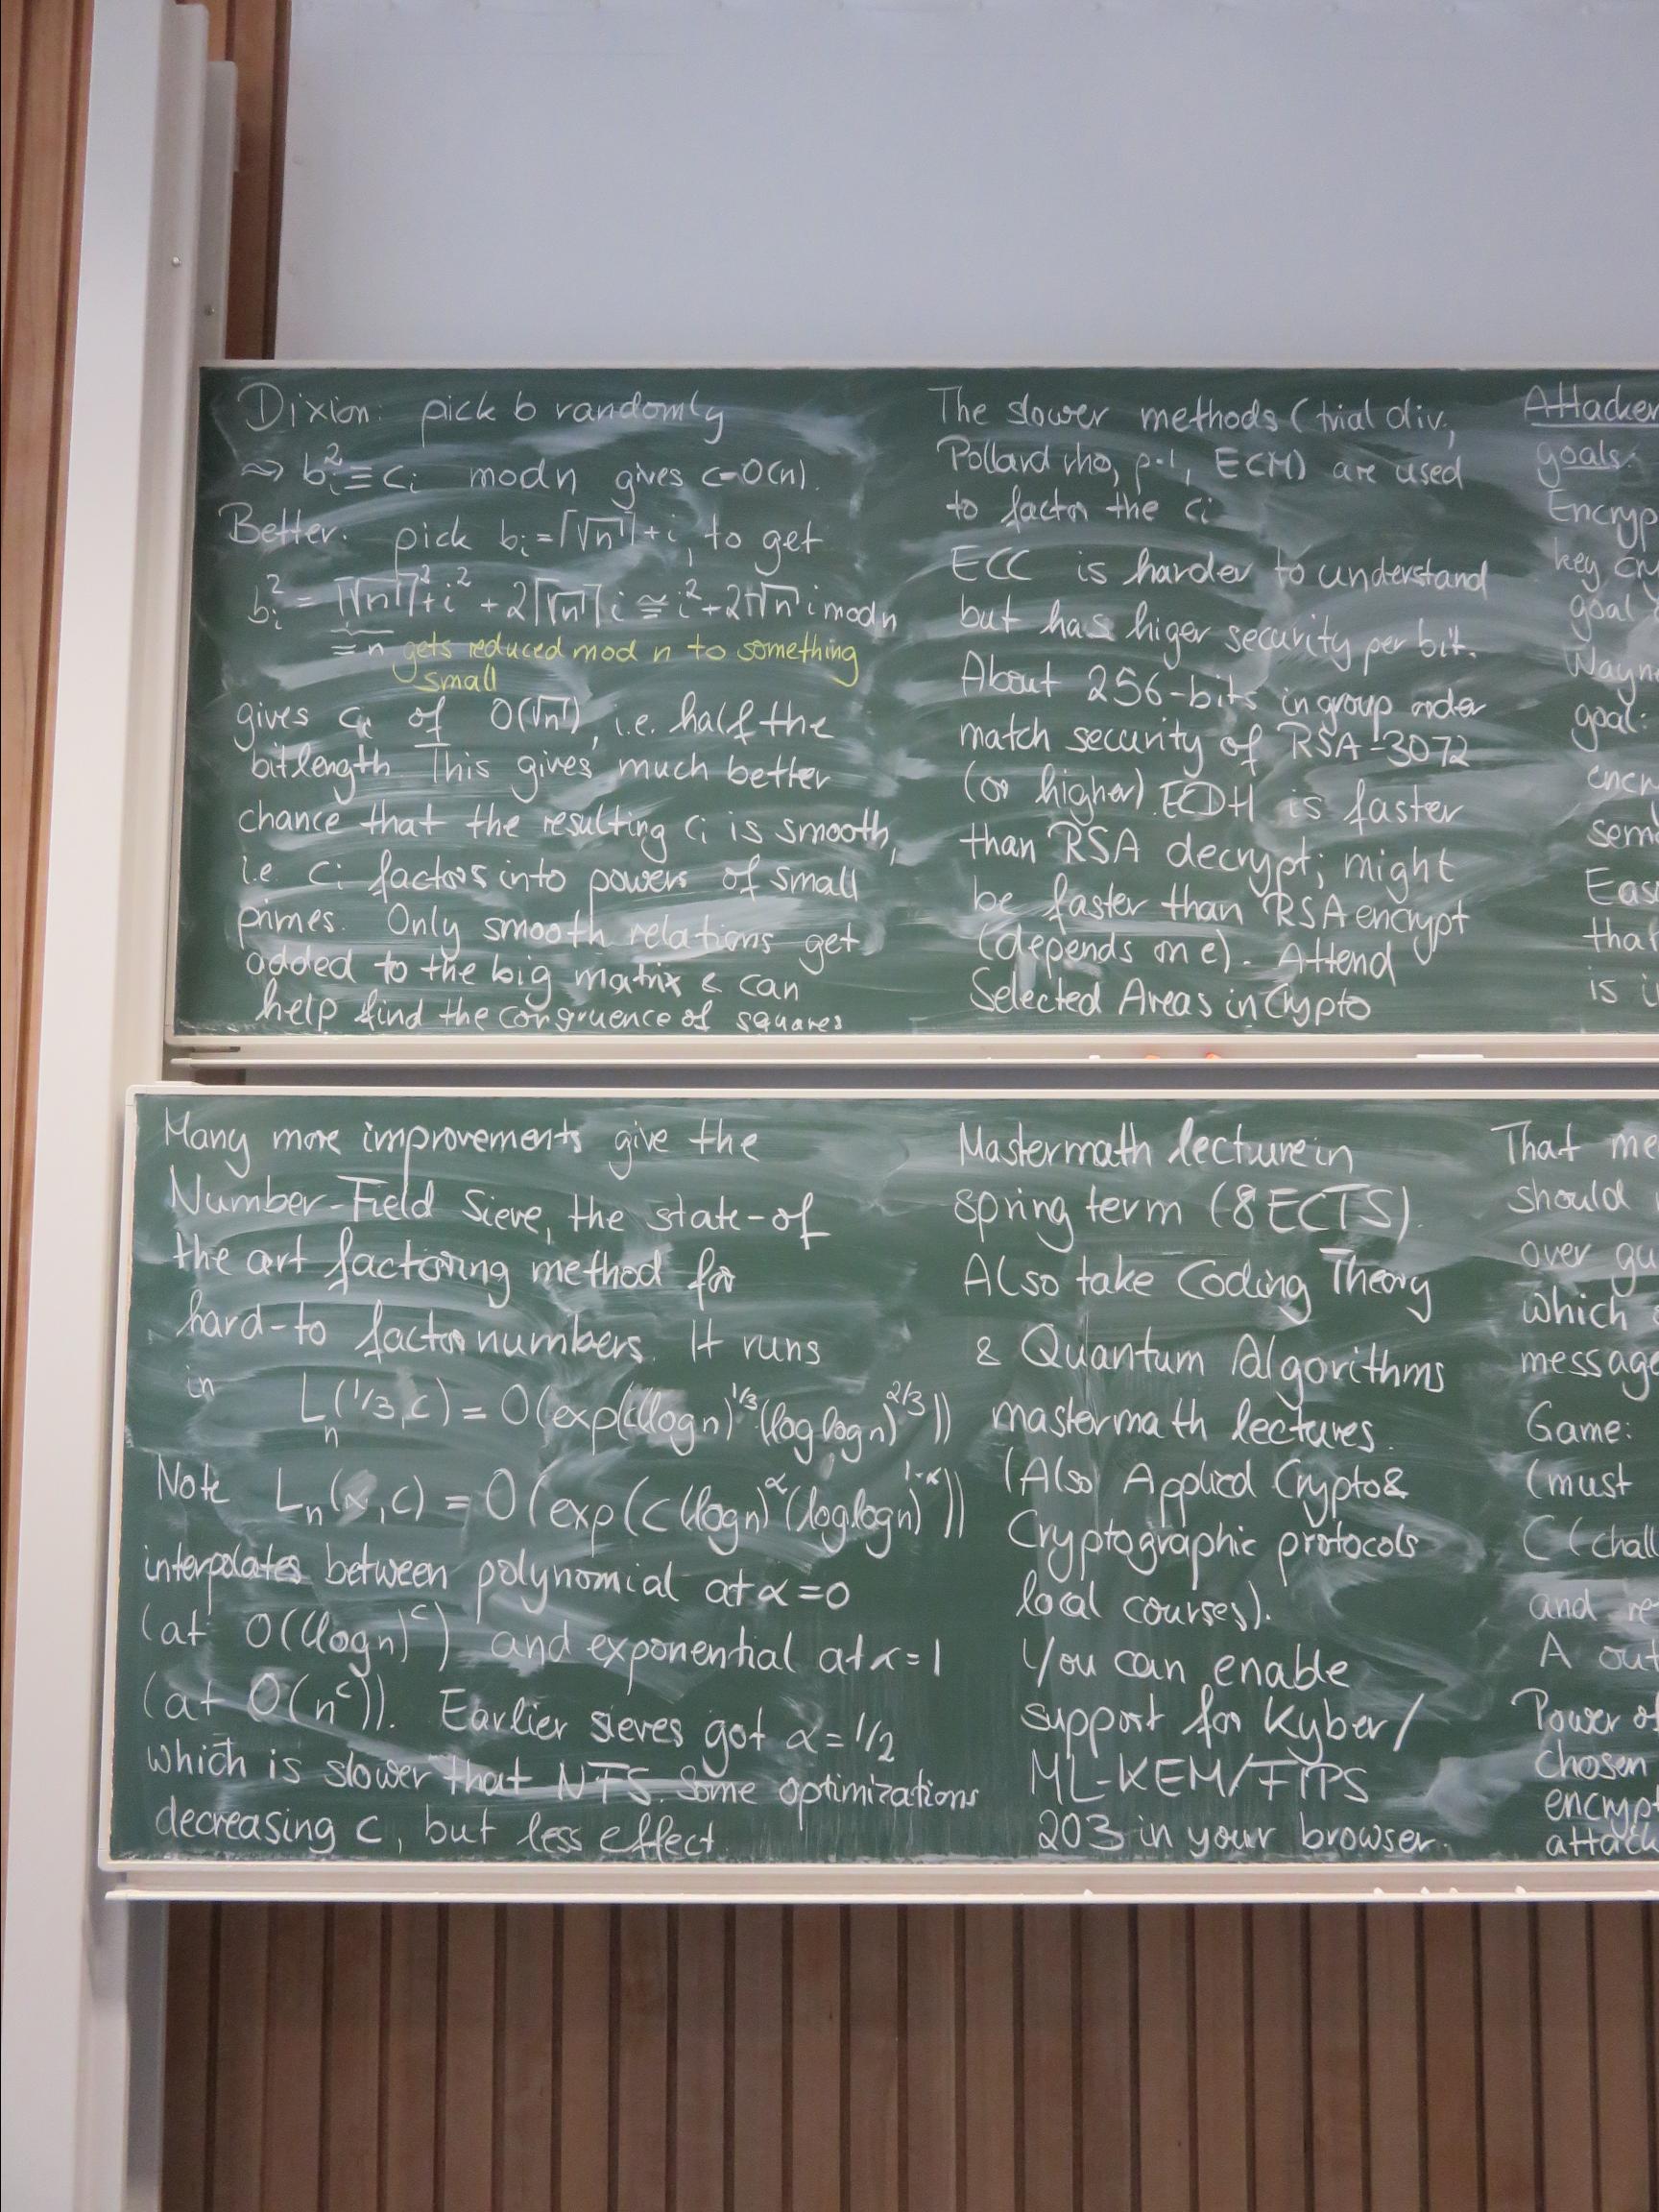 Dixion: pick b randomly
⇝ b_i^2 ≡ c_i mod n gives c=O(n).
Better: pick b_i = ⌈√n⌉+i, to get
b_i^2 = ⌈√n⌉^2+i^2 + 2⌈√n⌉i ≅ i^2+2√n i mod n
≅ n gets reduced mod n to something
small
gives c_i of O(√n), i.e. half the
bitlength. This gives much better
chance that the resulting c_i is smooth,
i.e. c_i factors into powers of small
primes. Only smooth relations get
added to the big matrix & can
help find the congruence of squares
The slower methods (trial div.,
Pollard rho, p-1, ECM) are used
to factor the c_i
ECC is harder to understand
but has higer security per bit.
About 256-bits in group order
match security of RSA-3072
(or higher). ECDH is faster
than RSA decrypt; might
be faster than RSA encrypt
(depends on e). Attend
Selected Areas in Crypto
Attacker
goals:
Encryp
key
goal
Wayne
goal:
encr
sem
Eas
that
is i
Many more improvements give the
Number-Field Sieve, the state-of
the art factoring method for
hard-to factor numbers. It runs
in L_n(1/3,c) = O(exp(c(log n)^1/3 (log log n)^2/3))
Note L_n(α,c) = O(exp(c(log n)^α (log log n)^1-α))
interpolates between polynomial at α=0
(at O((log n)^c) and exponential at α=1
(at O(n^c)). Earlier sieves got α=1/2
which is slower that NFS. Some optimizations
decreasing c, but less effect.
Mastermath lecture in
spring term (8 ECTS).
Also take Coding Theory
& Quantum Algorithms
mastermath lectures.
(Also Applied Crypto &
Cryptographic protocols
local courses).
You can enable
support for Kyber/
ML-KEM/FIPS
203 in your browser.
That me
should
over gu
which
message
Game:
(must
C (chall
and re
A out
Power of
chosen
encrypt
attack